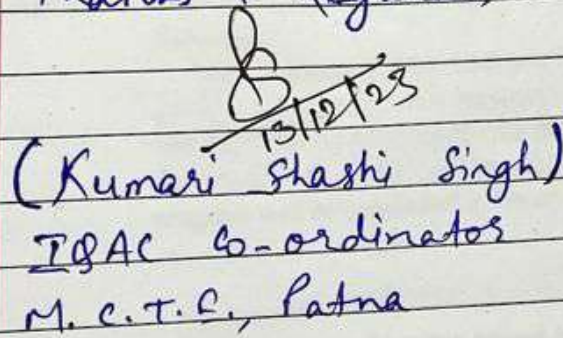 13/12/23
(Kumari Shashi Singh)
IQAC Co-ordinator
M. C. T. C., Patna